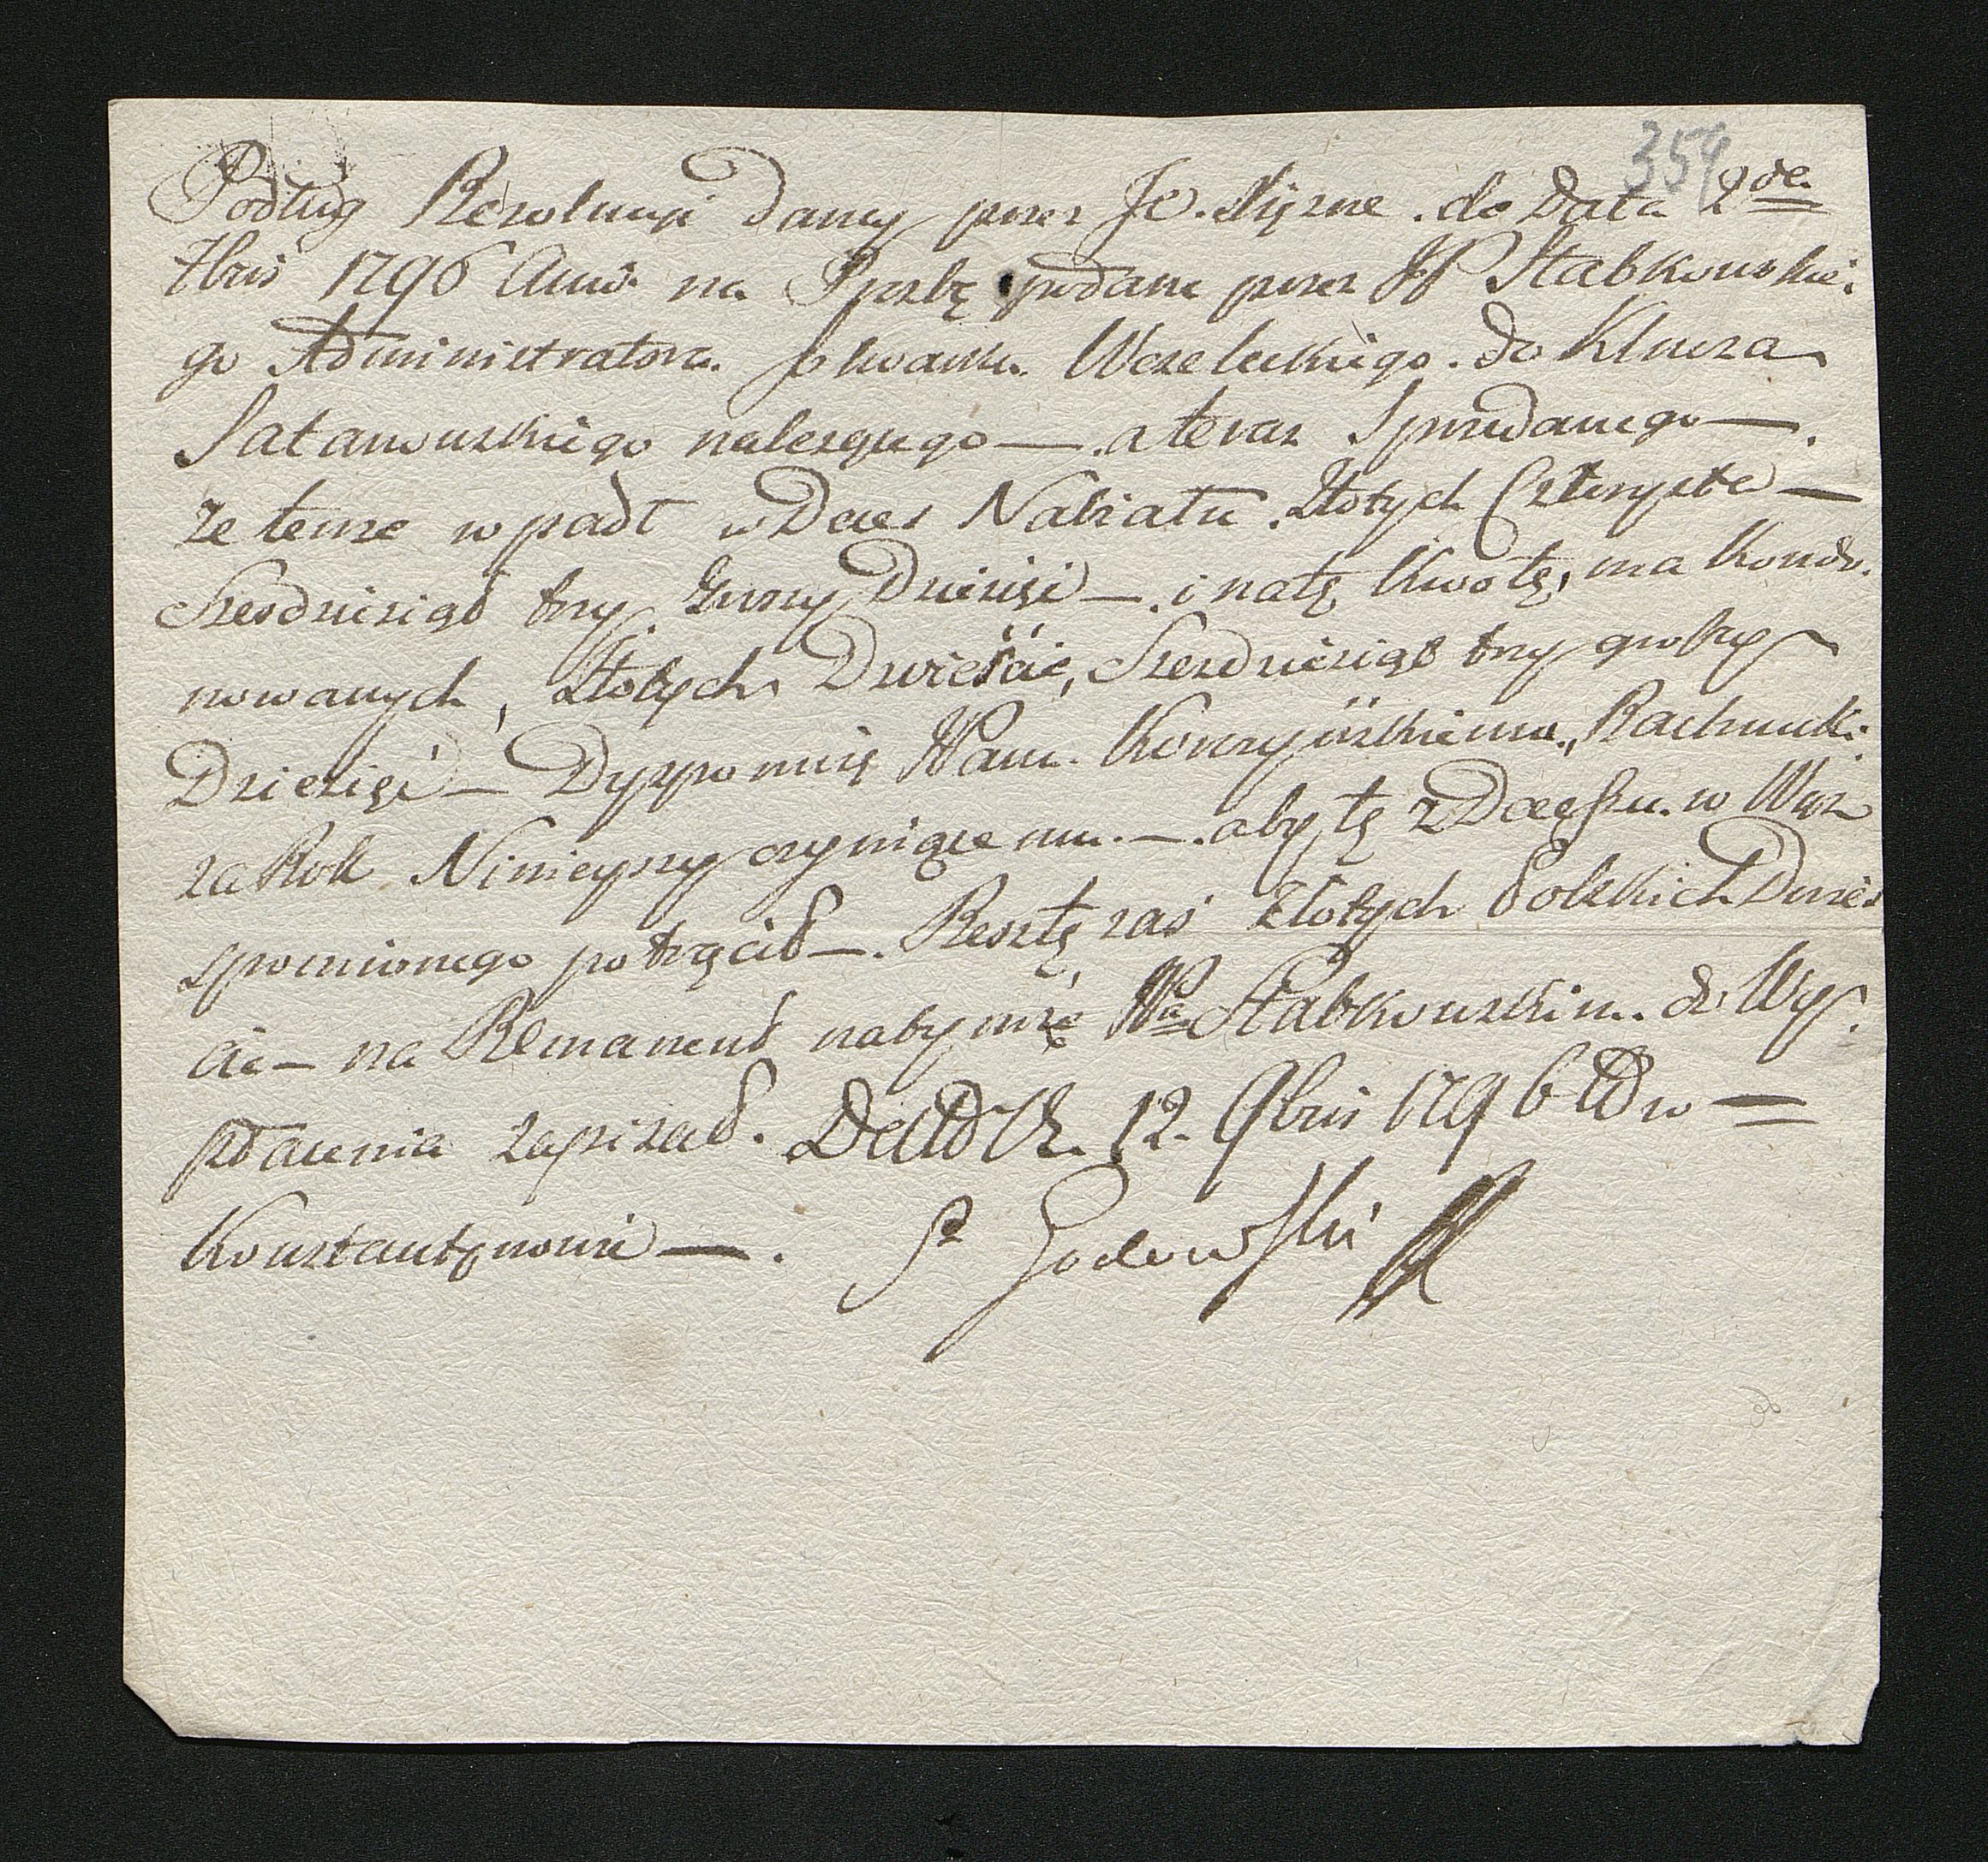 359
Podług Rezolucyi Dany przez Jc. Xiężne. do Data 2de
7bris 1796 Anno. na Proźbę podane przez JP Słabkowskie.
go Administratora. folwarku Wereleckigo. do Klucza
Satanowskiego należącego —. a teraz Sprzedanego —.
że temże wpadł w Deces Nabiału. Złotych Czterysta —
Szesdziesiąt trzy Groszy Dziesięć —. i na tę kwotę, ma kondo.
nowanych, Złotych Dwieście, Szesdziesiąt trzy groszy
Dziesięć — Dysponuię WPanu. Korczyńskiemu, Rachunki.
za Rok Ninieyszy czyniącemu. —. aby tę z Decessu. w Wyż
spomionego potrącił —. Resztę zaś Złotych Polskich Dwieś
cie — na Remanent nabymże WPa Słabkowskim. do Wy.
płacenia zapisał. 12. 9bris 1796 w —
Konstantynowie —. Godowski